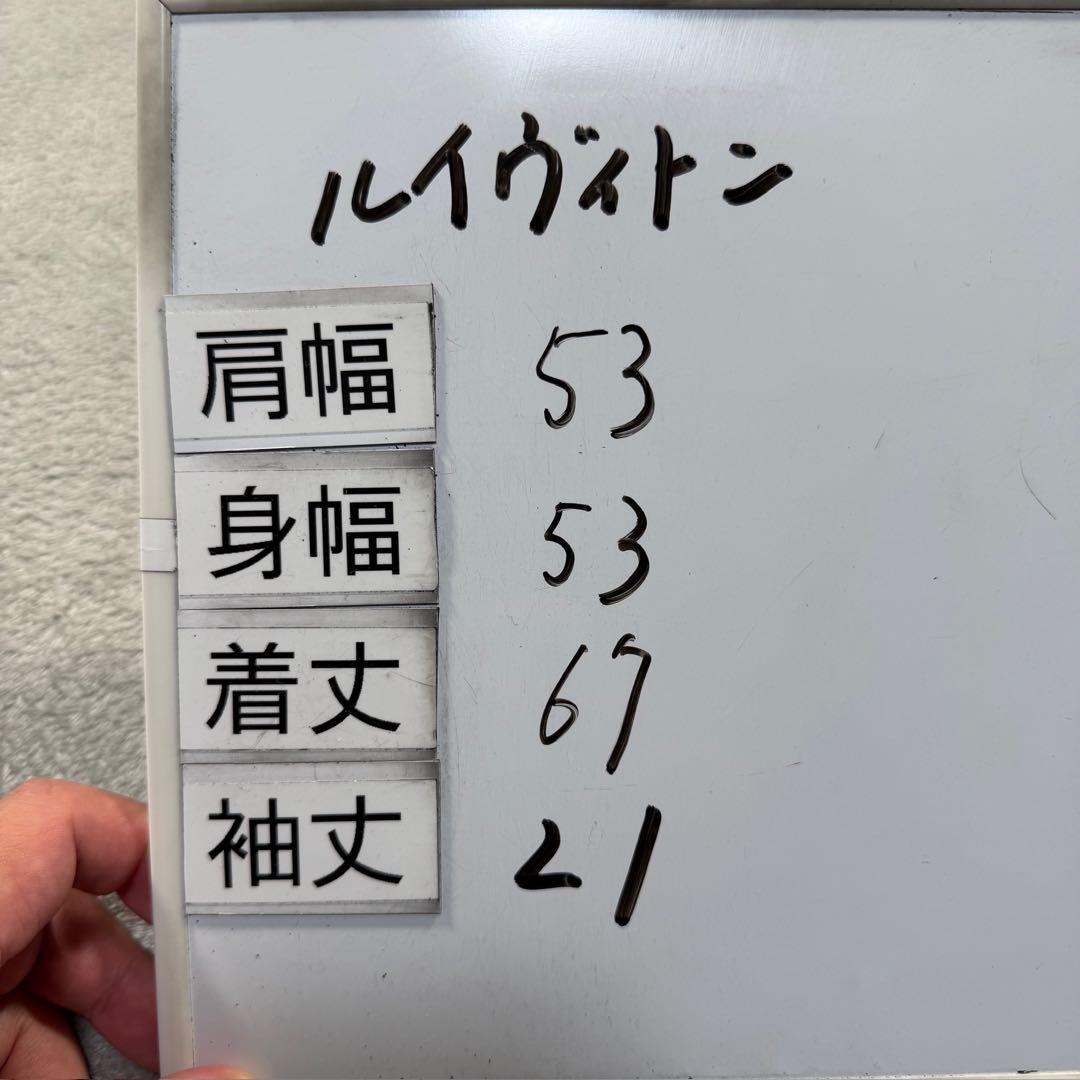 ルイヴィトン
肩幅 53
身幅 53
着丈 67
袖丈 21